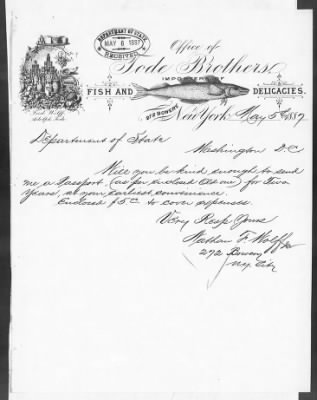 DEPARTMENT OF STATE
MAY 6 1887
RECEIVED
Office of
Tode Brothers,
IMPORTERS OF
FISH AND DELICACIES.
272 BOWERY
New York, May 5th 1887
Fred. Wolff
Adolph Tode
Department of State
Washington D.C
Will you be kind enough to send
me a Passport (as per enclosed one) for Two
Years, at your earliest convenience.
Enclosed $5.00 to cover expenses.
Very Resp Yours
Nathan F. Wolff
272 Bowery
N.Y. City